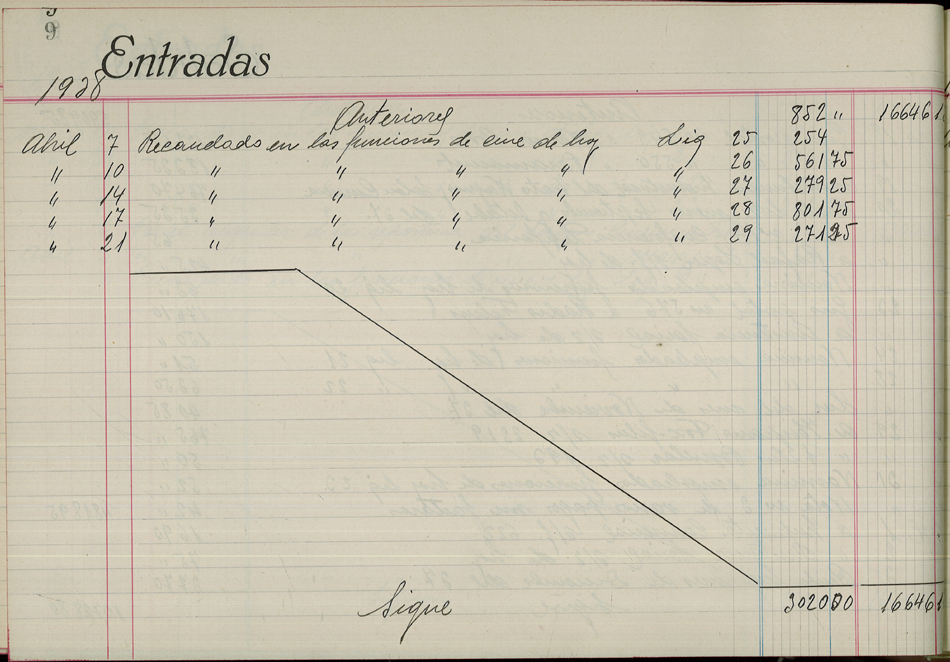 9
Entradas
1928
Anteriores 852 " 166461
Abril 7 Recaudado en las funciones de cine de hoy Liq 25 254
" 10 " " " " " 26 561 75
" 14 " " " " " 27 279 25
" 17 " " " " " 28 801 75
" 21 " " " " " 29 271 25
Sigue 3020 00 166461